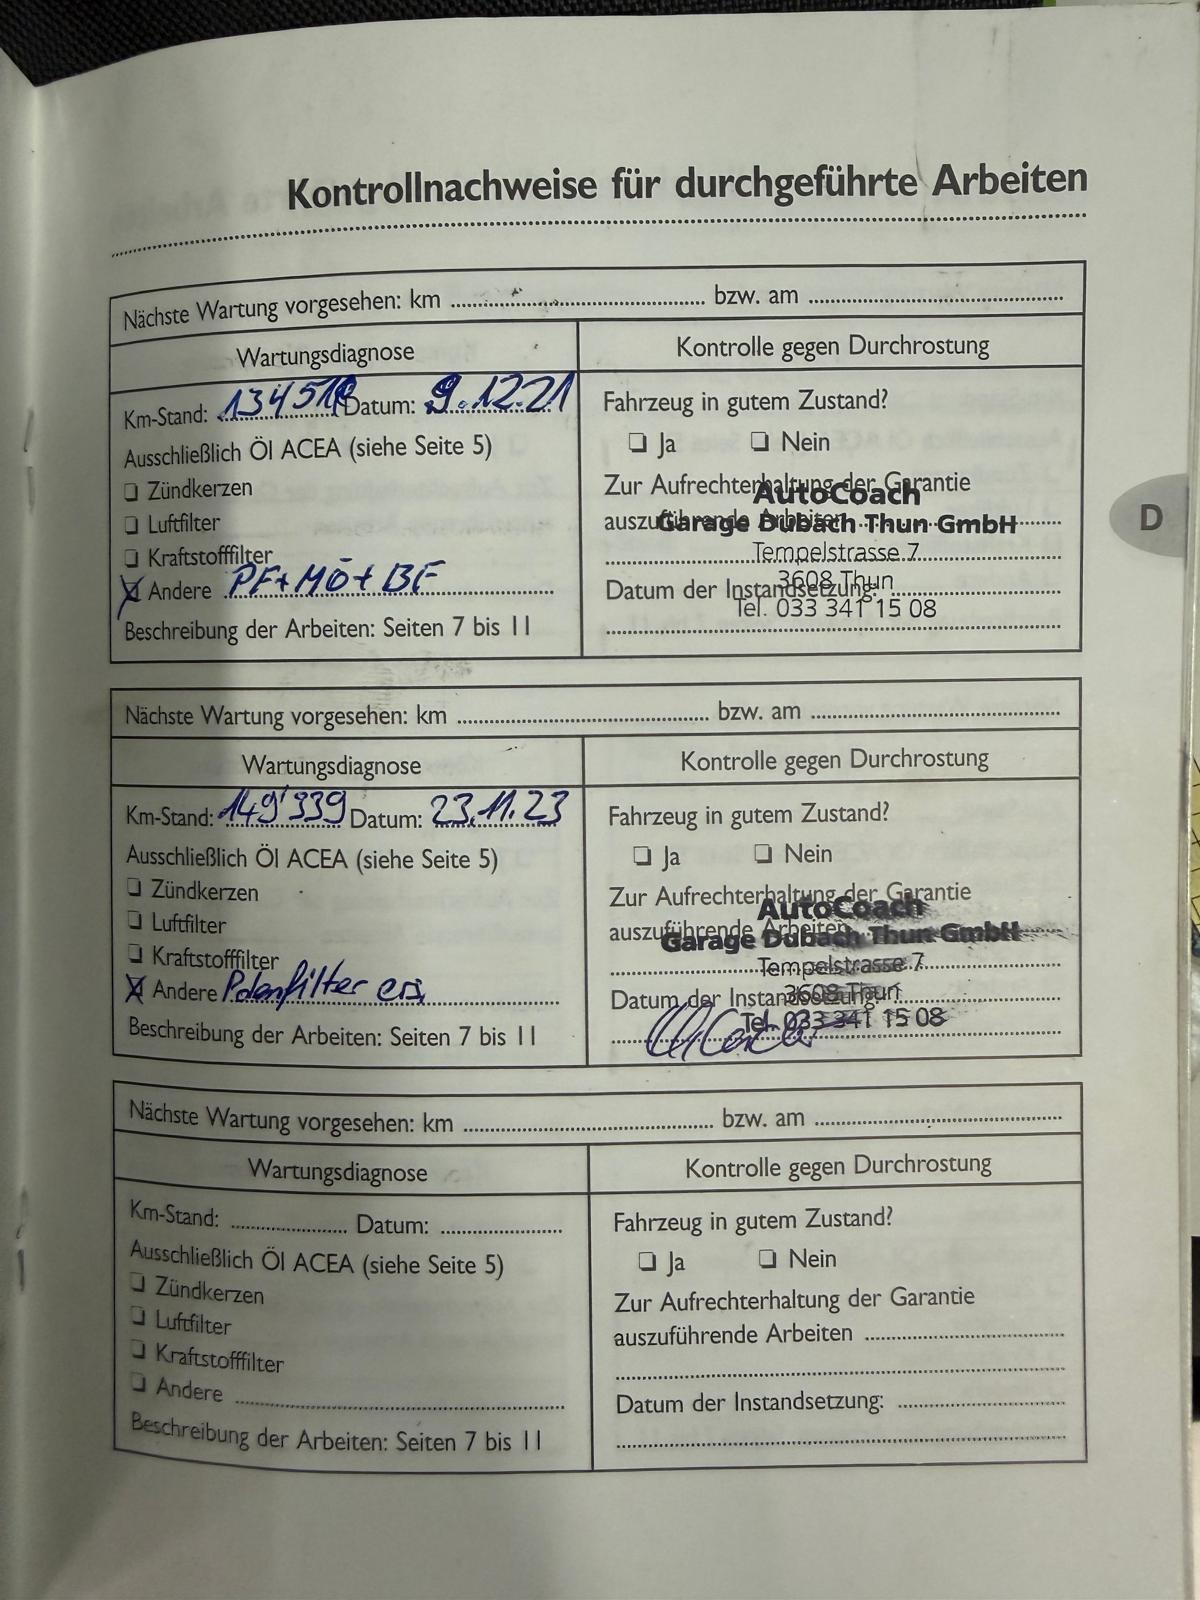 Kontrollnachweise für durchgeführte Arbeiten
Nächste Wartung vorgesehen: km bzw. am
Wartungsdiagnose
Kontrolle gegen Durchrostung
Km-Stand: Datum: 9.12.21
Ausschließlich Öl ACEA (siehe Seite 5)
Zündkerzen
Luftfilter
Kraftstofffilter
Andere PF+MÖ+BF
Beschreibung der Arbeiten: Seiten 7 bis 11
Fahrzeug in gutem Zustand?
Ja Nein
Zur Aufrechterhaltung der Garantie
auszuführende Arbeiten
Datum der Instandsetzung:
AutoCoach
Garage Dubach Thun GmbH
Tempelstrasse 7
3608 Thun
Tel. 033 341 15 08
D
Nächste Wartung vorgesehen: km bzw. am
Wartungsdiagnose
Kontrolle gegen Durchrostung
Km-Stand: 149'339 Datum: 23.11.23
Ausschließlich Öl ACEA (siehe Seite 5)
Zündkerzen
Luftfilter
Kraftstofffilter
Andere Polenfilter ers.
Beschreibung der Arbeiten: Seiten 7 bis 11
Fahrzeug in gutem Zustand?
Ja Nein
Zur Aufrechterhaltung der Garantie
auszuführende Arbeiten
Datum der Instandsetzung:
AutoCoach
Garage Dubach Thun GmbH
Tempelstrasse 7
3608 Thun
Tel. 033 341 15 08
Nächste Wartung vorgesehen: km bzw. am
Wartungsdiagnose
Kontrolle gegen Durchrostung
Km-Stand: Datum:
Ausschließlich Öl ACEA (siehe Seite 5)
Zündkerzen
Luftfilter
Kraftstofffilter
Andere
Beschreibung der Arbeiten: Seiten 7 bis 11
Fahrzeug in gutem Zustand?
Ja Nein
Zur Aufrechterhaltung der Garantie
auszuführende Arbeiten
Datum der Instandsetzung: